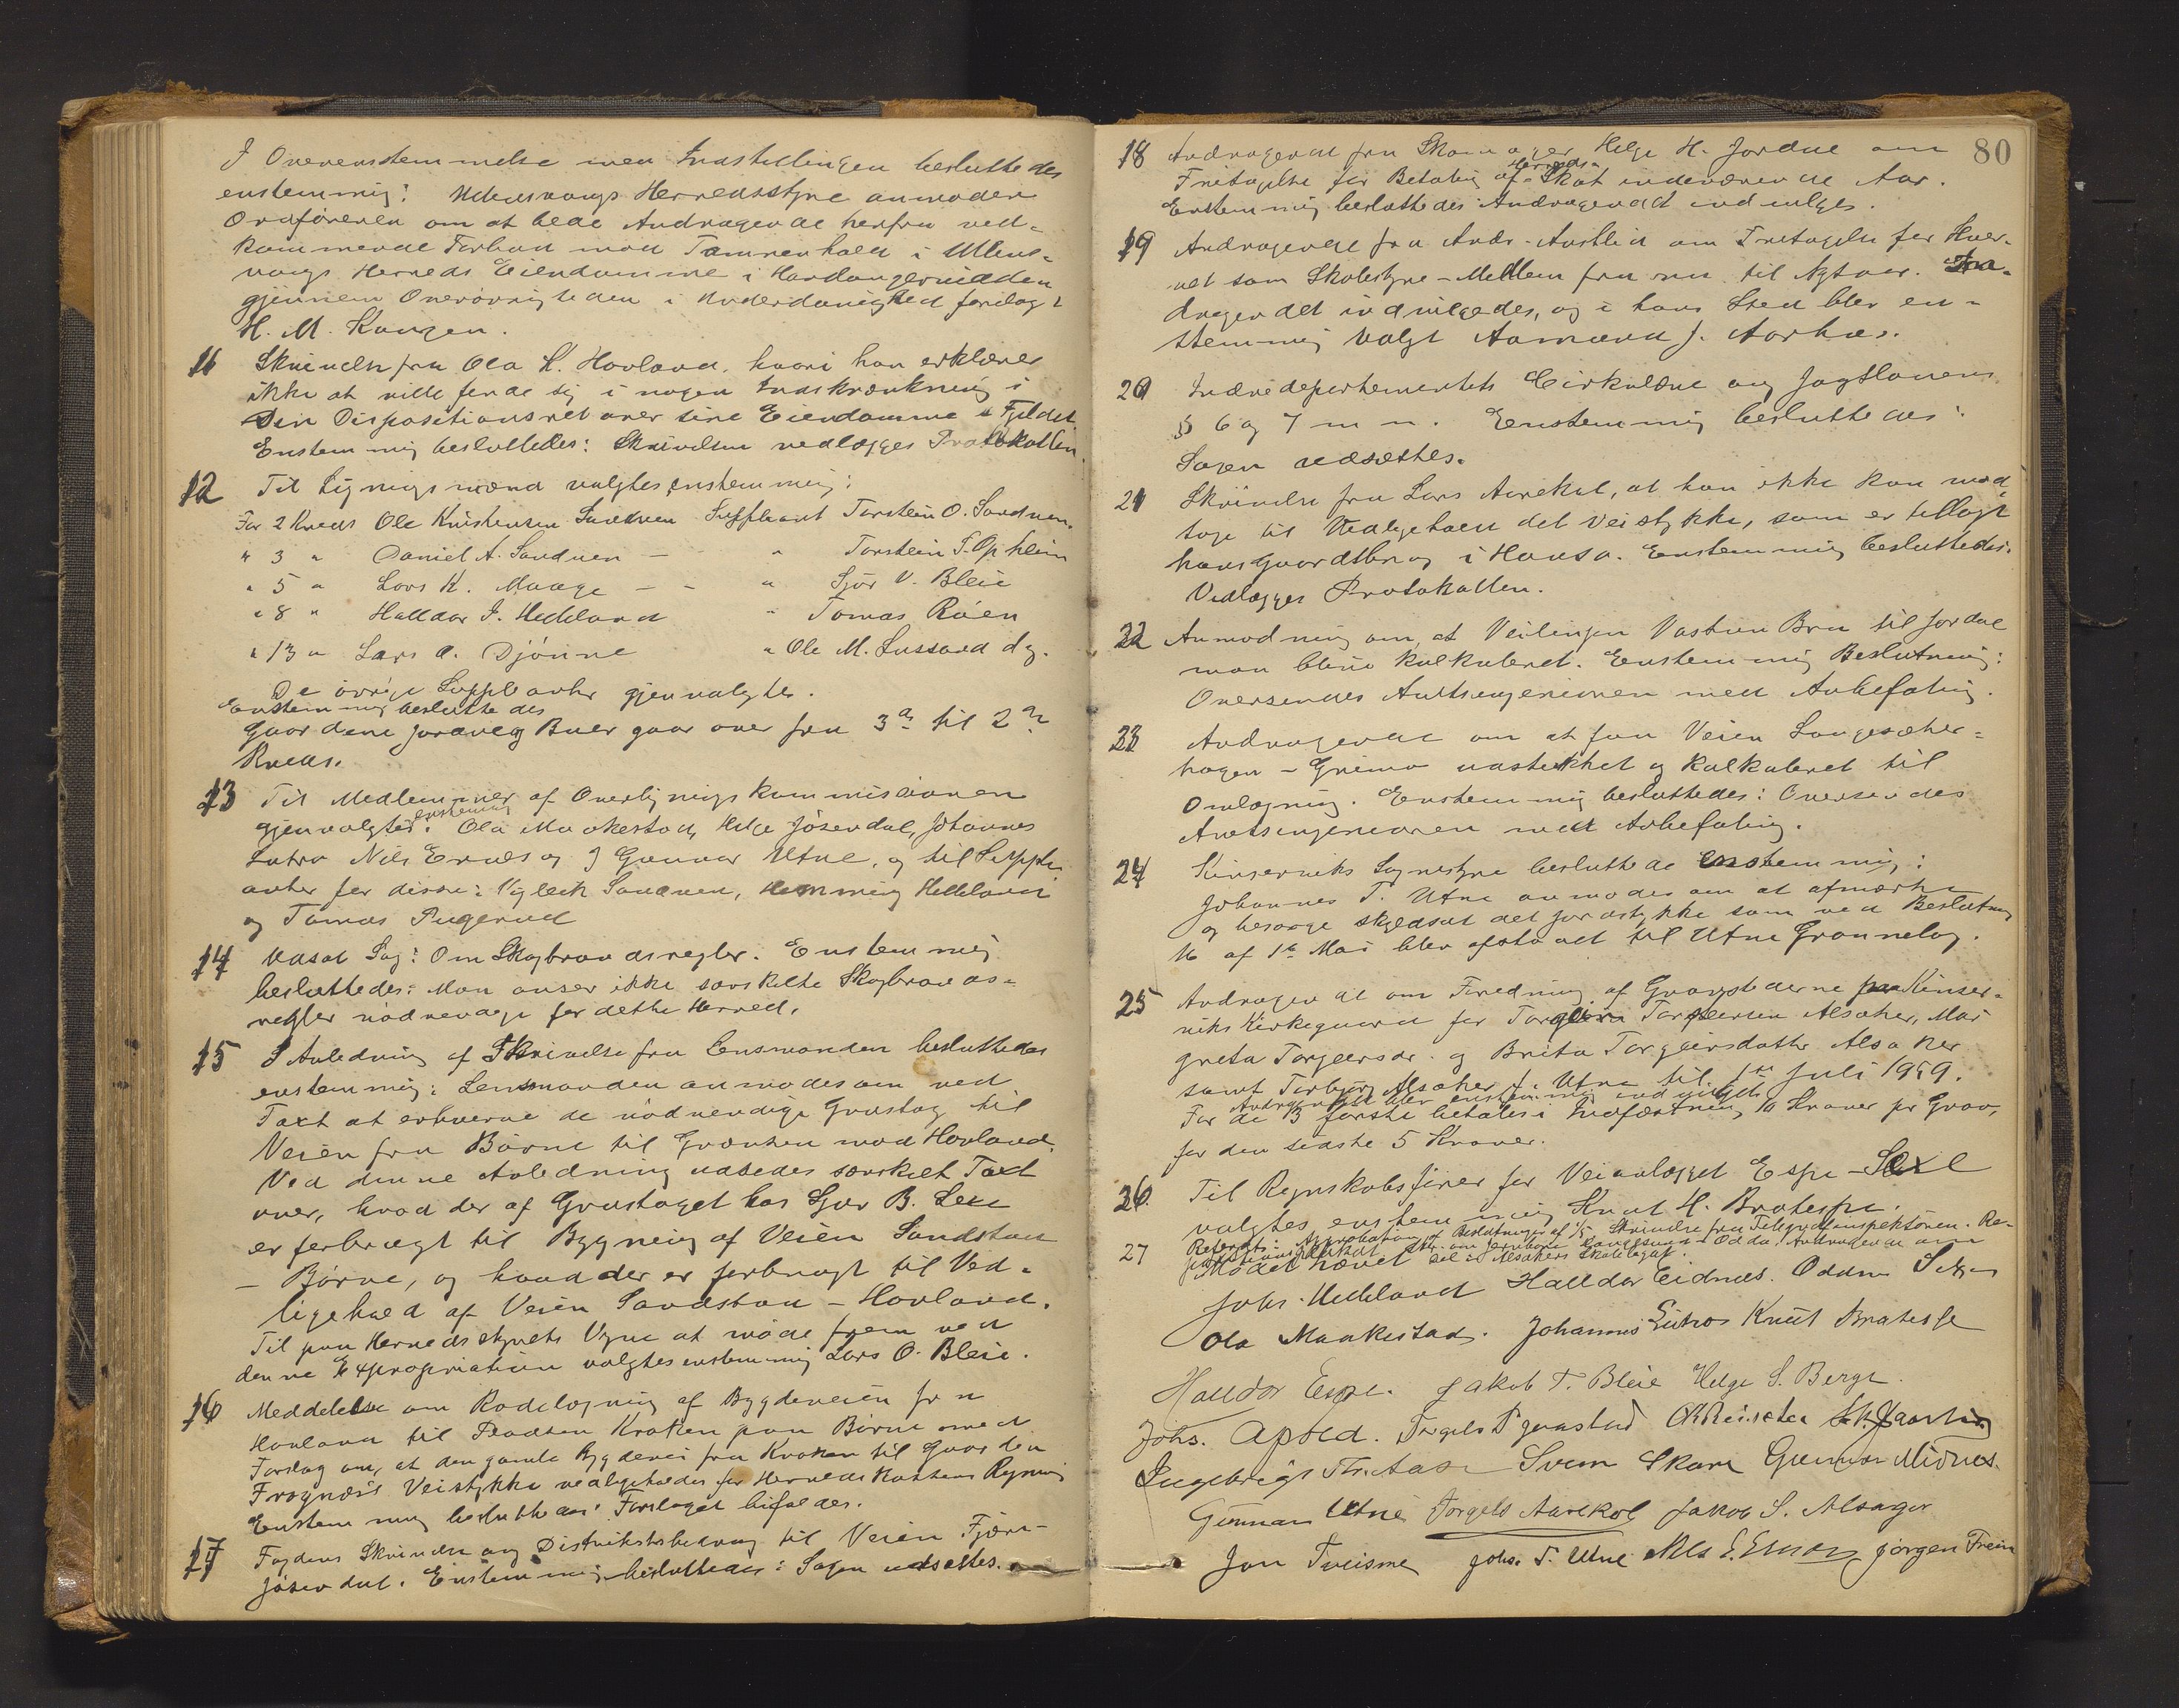 I Overensstemmelse med Indstillingen besluttedes
enstemmig: Ullensvangs Herredsstyre anmoder
Ordføreren om at lede Andragende herfra ved-
kommende Forbud mod Tamrenhold i Ullens-
vangs Herreds Eiendomme i Hardangervidden
gjennem Overøvrigheden i Underdanighed forelagt
H. M. Kongen.
11 Skrivelse fra Ola K. Hovland, hvori han erklærer
ikke at ville finde sig i nogen Indskrænkning i
Sin Dispositionsret over sine Eiendomme i Fjeldet.
Enstemmig besluttedes: Skrivelsen vedlægges Protokollen.
12 Til Ligningsmænd valgtes enstemmig:
For 2 Kreds Ole Kristensen Sandven Suppleant Torstein O. Sandven.
" 3 " Daniel A. Sandven — " Torstein T. Opheim
" 5 " Lars K. Maage — - " Sjur V. Bleie
" 8 " Halldor J. Helleland " Tomas Råen
" 13 " Lars O. Djønne " Ole M. Lussand d.y.
De øvrige Suppleanter gjenvalgtes.
Enstemmig besluttedes
Gaardene Jordal og Buer gaar over fra 3die til 2den
Kreds.
13 Til Medlemmer af Overligningskommissionen
gjenvalgtes enstemmig: Ola Maakestad, Helge Jøsendal, Johannes
Lutro Nils Ernæs og J Gunnar Utne, og til Supple-
anter for disse: Vigleik Sandven, Hemming Helleland
og Tomas Rogerud
14 Udsat Sag: Om Skogbrandsregler. Enstemmig
besluttedes: Man anser ikke særskilte Skogbrands-
regler nødvendige for dette Herred.
15 I Anledning af Skrivelse fra Lensmanden besluttedes
enstemmig: Lensmanden anmodes om ved
Taxt at erhverve de nødvendige Grustag til
Veien fra Børve til Grænsen mod Hovland.
Ved denne Anledning udbedes særskilt Taxt
over, hvad der af Grustaget hos Sjur B. Sexe
er forbrugt til Bygning af Veien Sandstøen
– Børve, og hvad der er forbrugt til Ved-
ligehold af Veien Sandstøen – Hovland.
Til paa Herredsstyrets Vegne at møde frem ved
denne Expropriation valgtes enstemmig Lars O. Bleie.
16 Meddelelse om Rodelægning af Bygdeveien fra
Hovland til Pladsen Kroken paa Børve med
Forslag om, at den gamle Bygdevei fra Kroken til Gaarden
Frøynæs's Veistykke vedligeholdes for Herredskassens Regning
Enstemmig besluttedes: Forslaget bifaldes.
17 Fogdens Skrivelse ang Distriktsbidrag til Veien Fjære-
Jøsendal. Enstemmig besluttedes: Sagen udsættes.
80
18 Andragende fra Skomager Helge H. Jordal om
Fritagelse for Betaling af Herreds-Skat indeværende Aar.
Enstemmig besluttedes: Andragendet indvilges.
19 Andragende fra Andr. Aastlid om Fritagelse for Hver-
vet som Skolestyre-Medlem fra nu til Nytaar. An-
dragendet indvilgedes, og i hans Sted blev en-
stemmig valgt Aamund J. Aarhus.
20 Indredepartementets Cirkulære ang Jagtlovens
§ 6 og 7 m m. Enstemmig besluttedes:
Sagen udsættes.
21 Skrivelse fra Lars Aarekol, at han ikke kan mod-
tage til Vedligehold det Veistykke, som er tillagt
hans Gaardsbrug i Hausa. Enstemmig besluttedes:
Vedlægges Protokollen.
22 Anmodning om, at Veilinjen Vastun Bru til Jordal
maa blive kalkuleret. Enstemmig Beslutning:
Oversendes Amtsingeniøren med Anbefaling.
23 Andragende om at faa Veien Langesæter-
hagen - Grimo udstukket og kalkuleret til
Omlægning. Enstemmig besluttedes: Oversendes
Amtsingeniøren med Anbefaling.
24 Kinserviks Sognestyre besluttede enstemmig:
Johannes T. Utne anmodes om at afmærke
og besørge skyldsat det Jordstykke som ved Beslutning
16 af 1ste Mai blev afstaaet til Utne Grannelag.
25 Andragende om Fredning af Gravstederne paa Kinser-
viks Kirkegaard for Torgeir Torgeirsen Alsaker, Mar-
greta Torgeirsdr. og Brita Torgeirsdatter Alsaker
samt Torbjørg Alsaker f. Utne til 1ste Juli 1959.
Andragendet blev enstemmig indvilget
For de 3 første betales i Indfæstning 10 Kroner pr Grav,
for den sidste 5 Kroner.
26 Til Regnskabsfører for Veianlægget Espe – Sexe
valgtes enstemmig Knut H. Bratespe.
27 Referat: Approbation af Beslutninger af 1/5. Skrivelse fra Telegrafinspektøren. Re-
Andragende om
Mødet hævet
Johs. Helleland Halldor Eidnes. Oddm
Ola Maakestad. Johannes Lutro Knut Bratespe
Halldor Espe. Jakob T. Bleie Helge S. Berge
Johs. Apold. Torgils Tjoastad
Ingebrigt Aase Svein Skare Gunnar Midnes.
Gunnar Utne Torgels Aarekol Jakob S. Alsager
Jon Tveisme Johs. T. Utne Nils E. Ernes Jørgen Freim